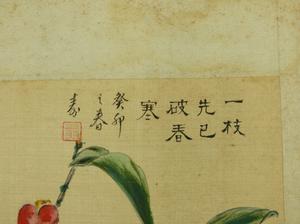 一枝
先已
破春
寒
癸卯
之春
寿